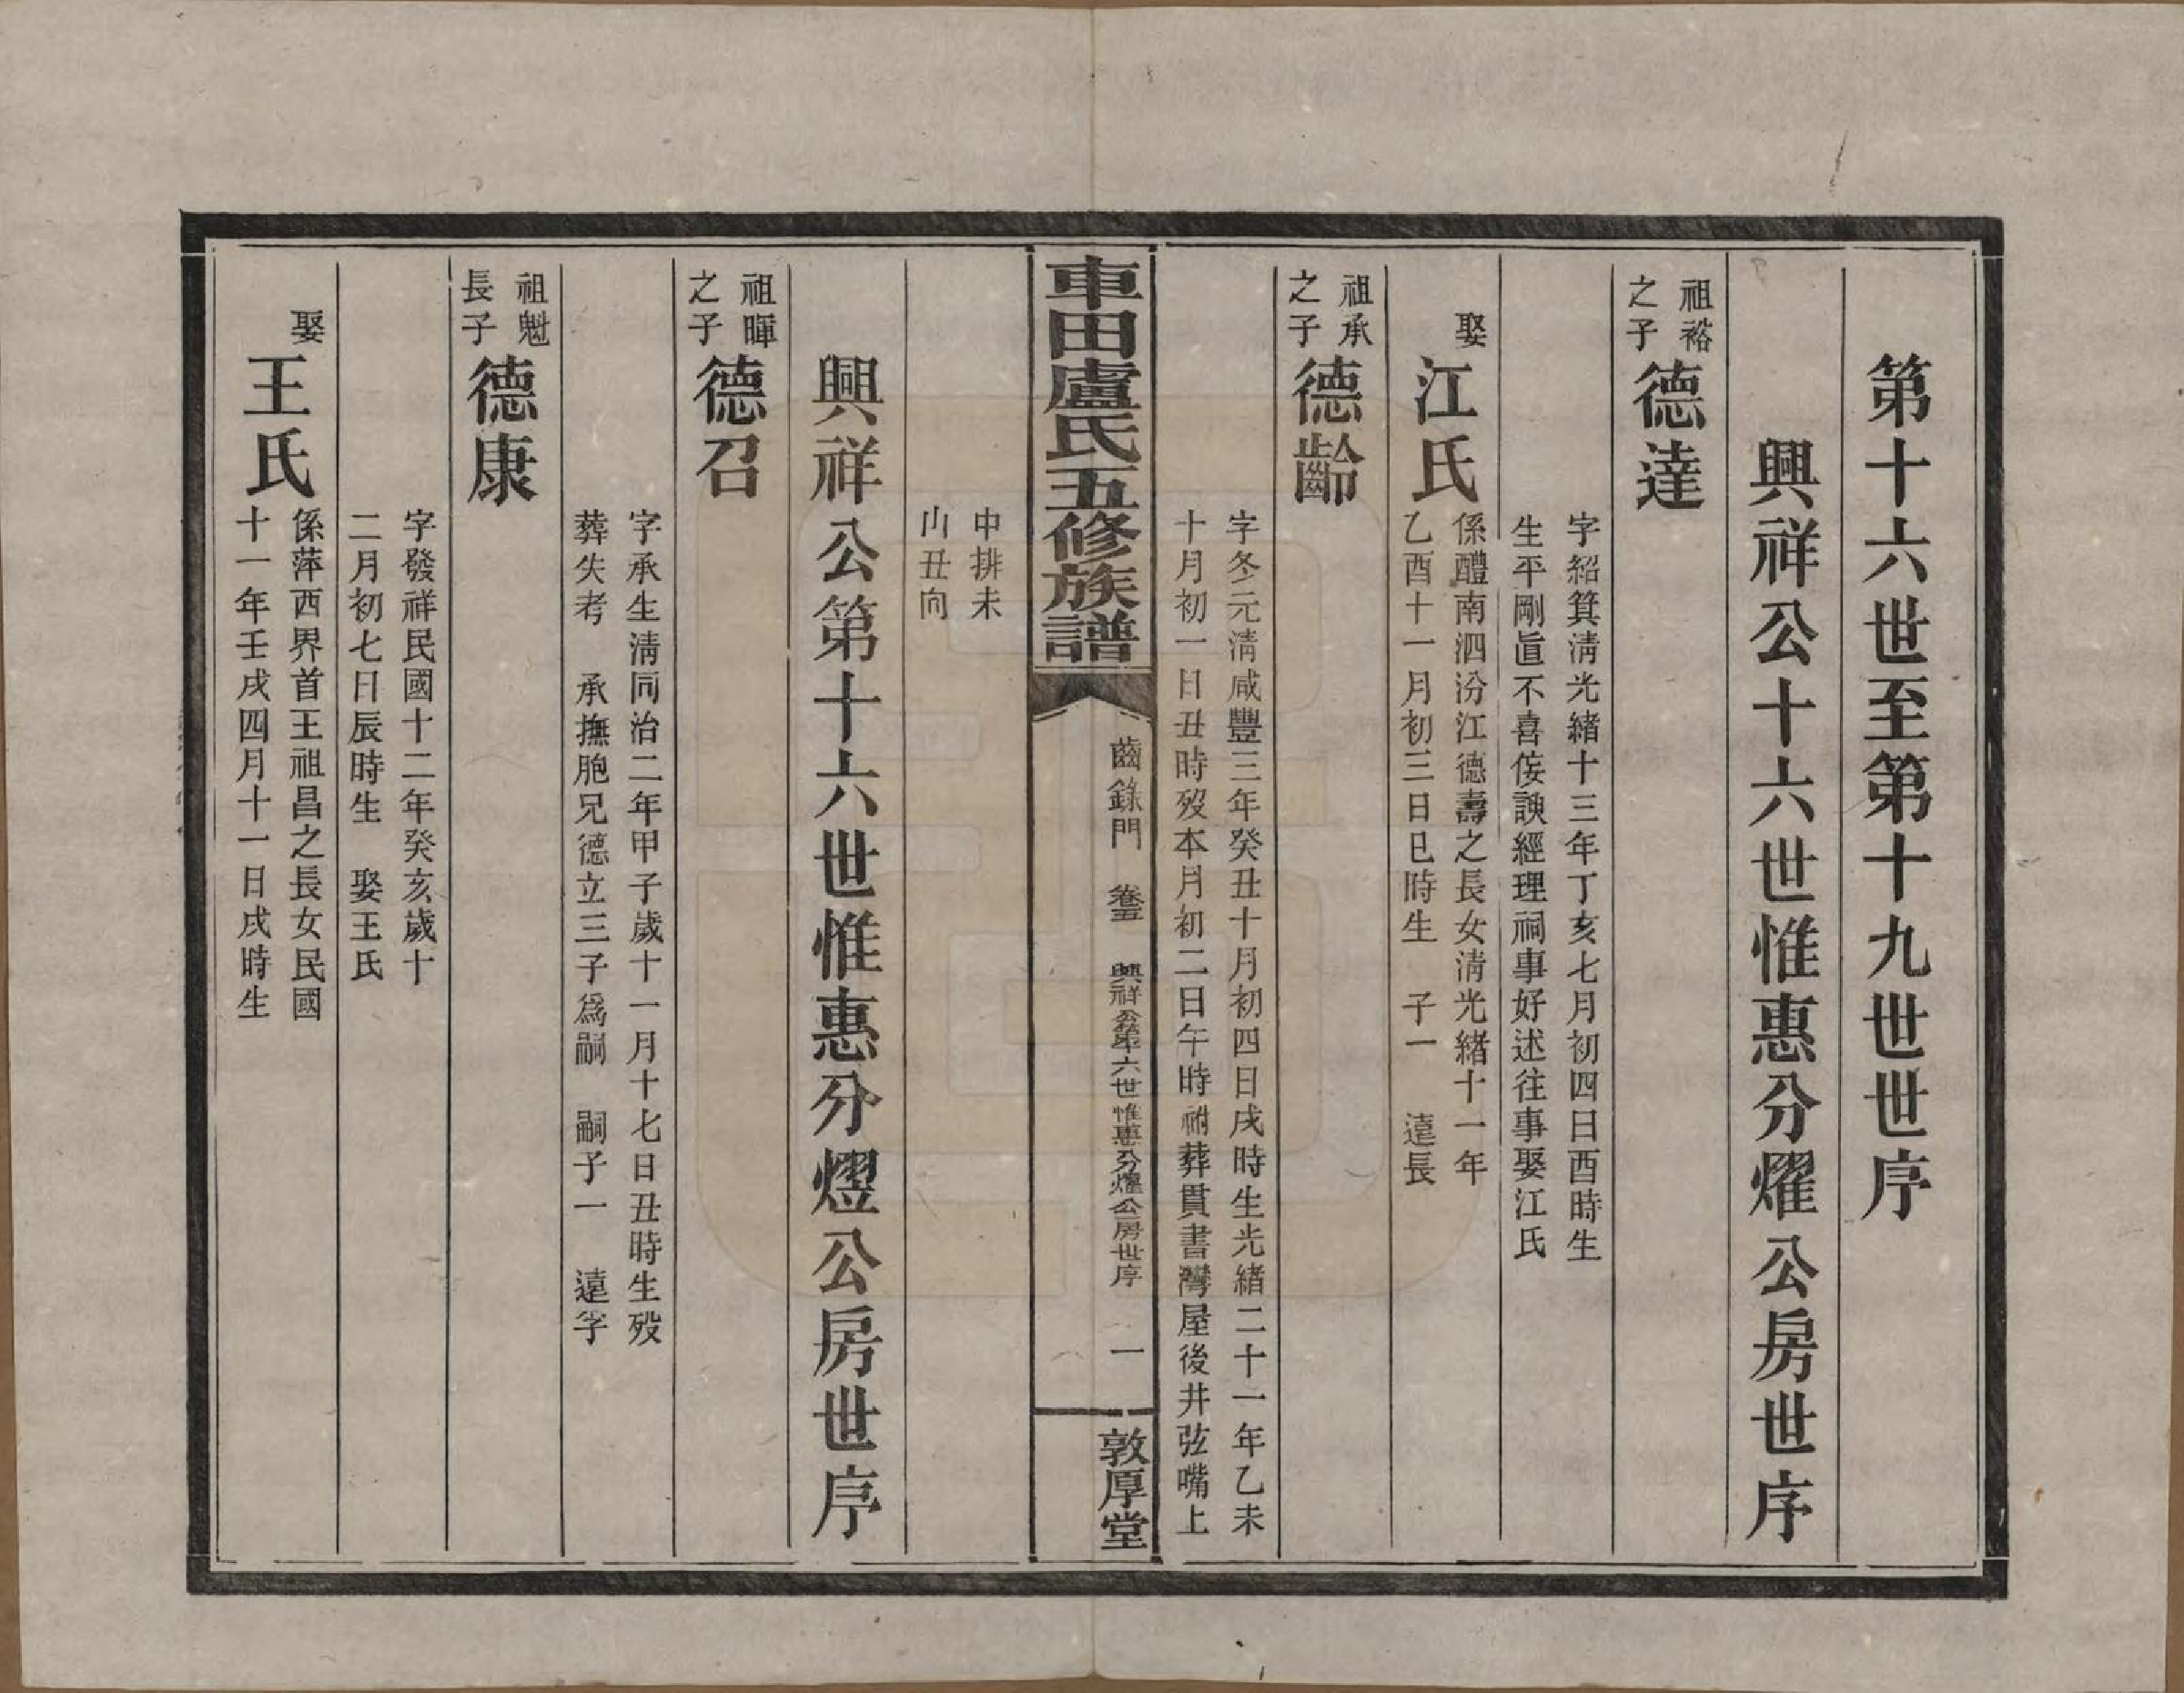 第十六世至第十九世世序
興祥公十六世惟惠分燿公房世序
祖裕
之子
德達
字紹箕淸光緒十三年丁亥七月初四日酉時生
生平剛直不喜侫諛經理祠事好述往事娶江氏
娶
江氏
係醴南泗汾江德壽之長女淸光緒十一年
乙酉十一月初三日巳時生　子一　遠長
祖承
之子
德齡
字冬元淸咸豐三年癸丑十月初四日戌時生光緒二十一年乙未
十月初一日丑時歿本月初二日午時祔葬貫書灣屋後井弦嘴上
車田盧氏五修族譜
齒錄門　卷五　興祥公第十六世惟惠分燿公房世序　一
敦厚堂
中排未
山丑向
興祥公第十六世惟惠分熤公房世序
祖暉
之子
德召
字承生淸同治二年甲子歲十一月十七日丑時生歿
葬失考　承撫胞兄德立三子爲嗣　嗣子一　遠字
祖魁
長子
德康
字發祥民國十二年癸亥歲十
二月初七日辰時生　娶王氏
娶
王氏
係萍西界首王祖昌之長女民國
十一年壬戌四月十一日戌時生